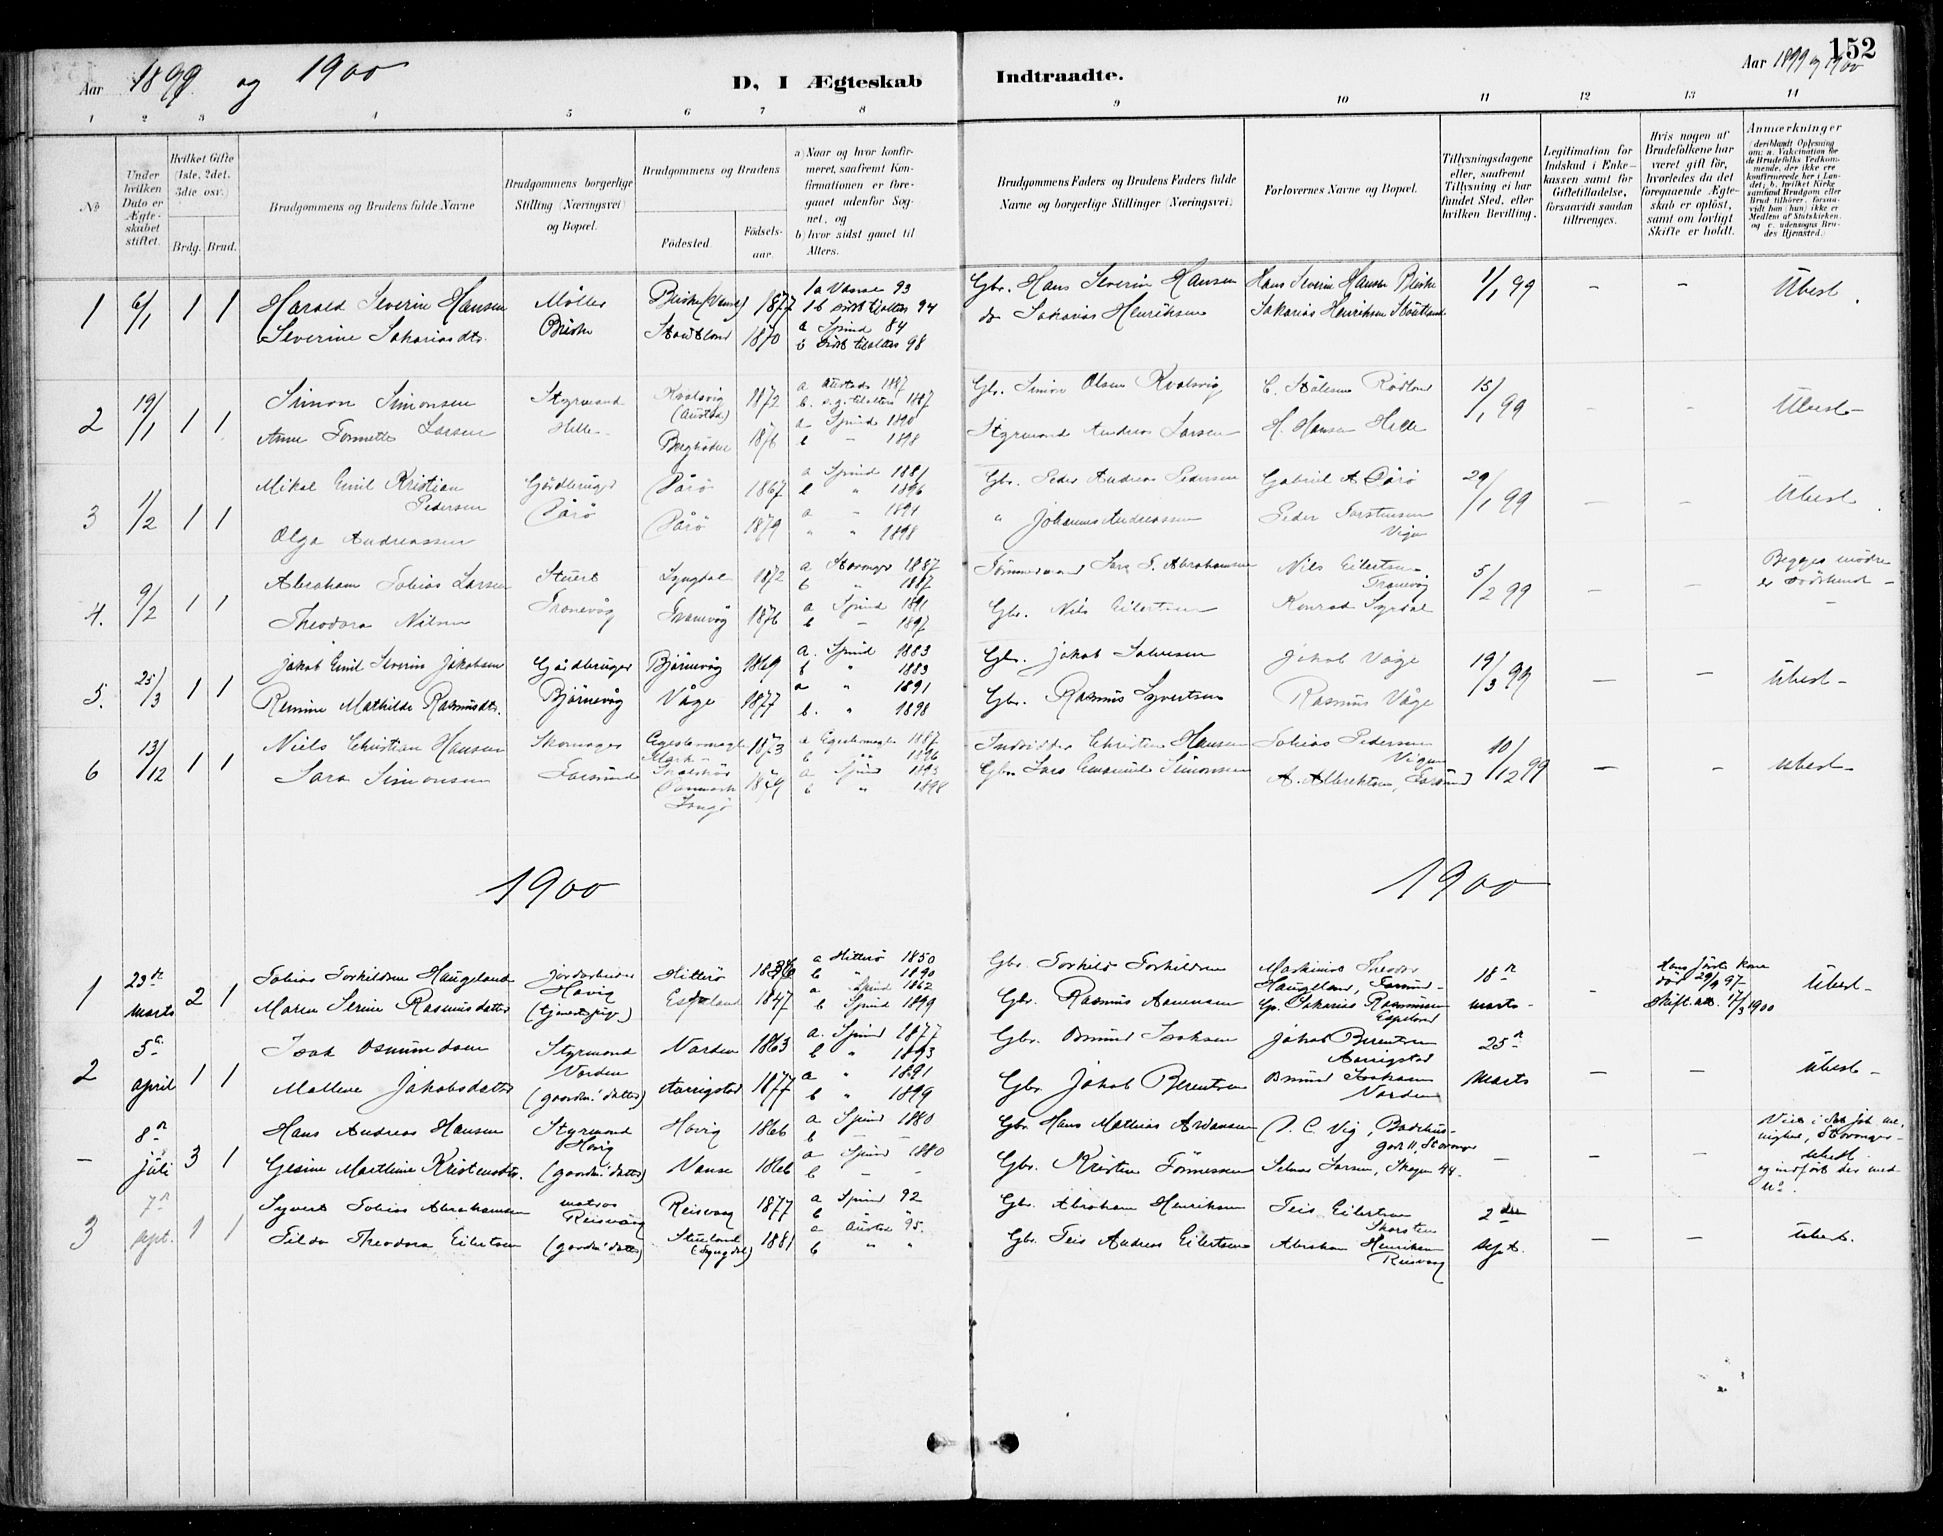 Aar 1899 og 1900
D, I Ægteskab Indtraadte.
Aar 1899 og 1900
152
1 2 3 4 5 6 7 8 9 10 11 12 13 14
No
Under hvilken Dato er Ægteskabet stiftet.
Hvilket Gifte (1ste, 2det, 3die osv.)
Brdg. Brud.
Brudgommens og Brudens fulde Navne
Brudgommens borgerlige Stilling (Næringsvei) og Bopæl.
Brudgommens og Brudens
Fødested.
Fødselsaar.
a) Naar og hvor konfirmeret, saafremt Konfirmationen er foregaaet udenfor Sognet, og
b) hvor sidst gaaet til Alters.
Brudgommens Faders og Brudens Faders fulde Navne og borgerlige Stillinger (Næringsvei)
Forlovernes Navne og Bopæl.
Tillysningsdagene eller, saafremt Tillysning ei har fundet Sted, efter hvilken Bevilling.
Legitimation for Indskud i Enkekassen samt for Giftetilladelse, forsaavidt saadan tiltrænges.
Hvis nogen af Brudefolkene har været gift før, hvorledes da det foregaaende Ægteskab er opløst, samt om lovligt Skifte er holdt.
Anmærkninger
(deriblandt Oplysning om: a. Vakcination for de Brudefolks Vedkommende, der ikke ere konfirmerede her i Landet; b. hvilket Kirkesamfund Brudgom eller Brud tilhører, forsaavidt han (hun) ikke er Medlem af Statskirken, og c. udensogns Brudes Hjemsted.)
1 6/1 1 1 Harald Severin Hansen Møller Briske (Vanse) 1877 a Vanse 93 Gbr. Hans Severin Hansen Hans Severin Hansen Briske 1/1 99 - - Ubesl.
b sidst tilalters 94
Severine Sakariasdtr. Briske 1870 a Spind 84 do Sakarias Henriksen Sakarias Henriksen
b sidst tilalters 98
2 19/1 1 1 Simon Simonsen Styrmand Kvalsvig (Austad) 1872 a Austad 1887 Gbr. Simon Olsen Kvalsvig 15/1 99 Ubesl.
Anne Tonnette Larsen Helle 1876 a Spind 1890 Styrmand Andreas Larsen H. Hansen Helle
b " 1898
3 1/2 1 1 Mikal Emil Kristian Pedersen Gårdbruger Farø 1867 a Spind 1881 Gbr. Peder Andreas Pedersen Gabriel A. Farø 29/1 99 - - Ubesl.
b " 1896
Olga Andreassen Farø Farø 1879 a " 1891 " Johannes Andreassen Peder Torstensen
" " 1898
4. 9/2 1 1 Abraham Tobias Larsen Stuert Lyngdal 1872 a Stavanger 1887 Tømmermand Lars T. Abrahamsen Nils Eilertsen Tranevåg 5/2 99 - - Begges mødre er sødskend
b " 1887
Theodora Nilsen Tranevåg Tranevåg 1876 a Spind 1891 Gbr. Nils Eilertsen Konrad
b " 1897
5. 25/3 1 1 Jakob Emil Severin Jakobsen Gårdbruger Bjørnevåg 1869 a. Spind 1883 Gbr. Jakob Salvesen Jakob Våge 19/3 99 - - Ubesl.
b " 1883
Remine Mathilde Rasmusdtr. Bjørnevåg Våge 1877 a " 1891 Gbr. Rasmus Syvertsen Rasmus Våge
b. " 1898
6 13/12 1 1 Niels Christian Hansen Skomager 1873 a 1887 Christen Hansen Tobias Pedersen 10/12 99 - - Ubesl.
b " 1896
Sara Simonsen Farsund a Spind 1893 Gbr. Lars Emanuel Simonsen A. Albrektsen, Farsund
b " 1898
1900 1900
1 23de marts 2 1 Tobias Torkildsen Haugeland Jordarbeider Hitterø a Hitterø 1850 Gbr. Torkild Torkildsen Haugeland, Farsund 18de marts Hans første kone død 29/9 97 Ubesl.
b " 1890
Maren Serine Rasmusdatter Høvig (tjenestepige) Espeland 1847 a Spind 1862 Gbr. Rasmus Aanensen Gbr. Sakarias Rasmussen Espeland Skifteatt. 17/3 1900
b Spind 1899
2 5te april 1 1 Isak Osmundsen Styrmand Varden 1863 a. Spind 1877 Gbr. Osmund Isaksen Jakob Berentsen Aarrigstad 25de marts - - Ubesl.
b " 1893
Mallene Jakobsdatter (gaardm. datter) Aarrigstad 1877 a " 1891 Gbr. Jakob Berentsen Osmund Isaksen
b " 1899
- 8de juli 3 1 Hans Andreas Hansen Styrmand Høvig 1866 a Spind 1880 Gbr. Hans Mathias Stavanger - - - Viet i St. menighed, Stavanger
Høvig b
Gesine Marthine Kristensdtr. (gaardm. datter) Vanse 1866 a Spind 1880 Gbr. Kristen Tønnessen Selmer Larsen, Skagen 44. Ubesl. og indført der med No.
b - -
3 7de sept. 1 1 Syvert Tobias Abrahamsen matros Reisvaag Reisvaag 1877 a Spind 92 Gbr. Abraham Henriksen Teis Eilertsen 2den sept. - - Ubesl.
b " "
Tilda Theodora Eilertsen (gaardm. datter) (Lyngdal) 1881 a Austad 95. Gbr. Teis Andreas Eilertsen Abraham Henriksen Reisvaag
b " "